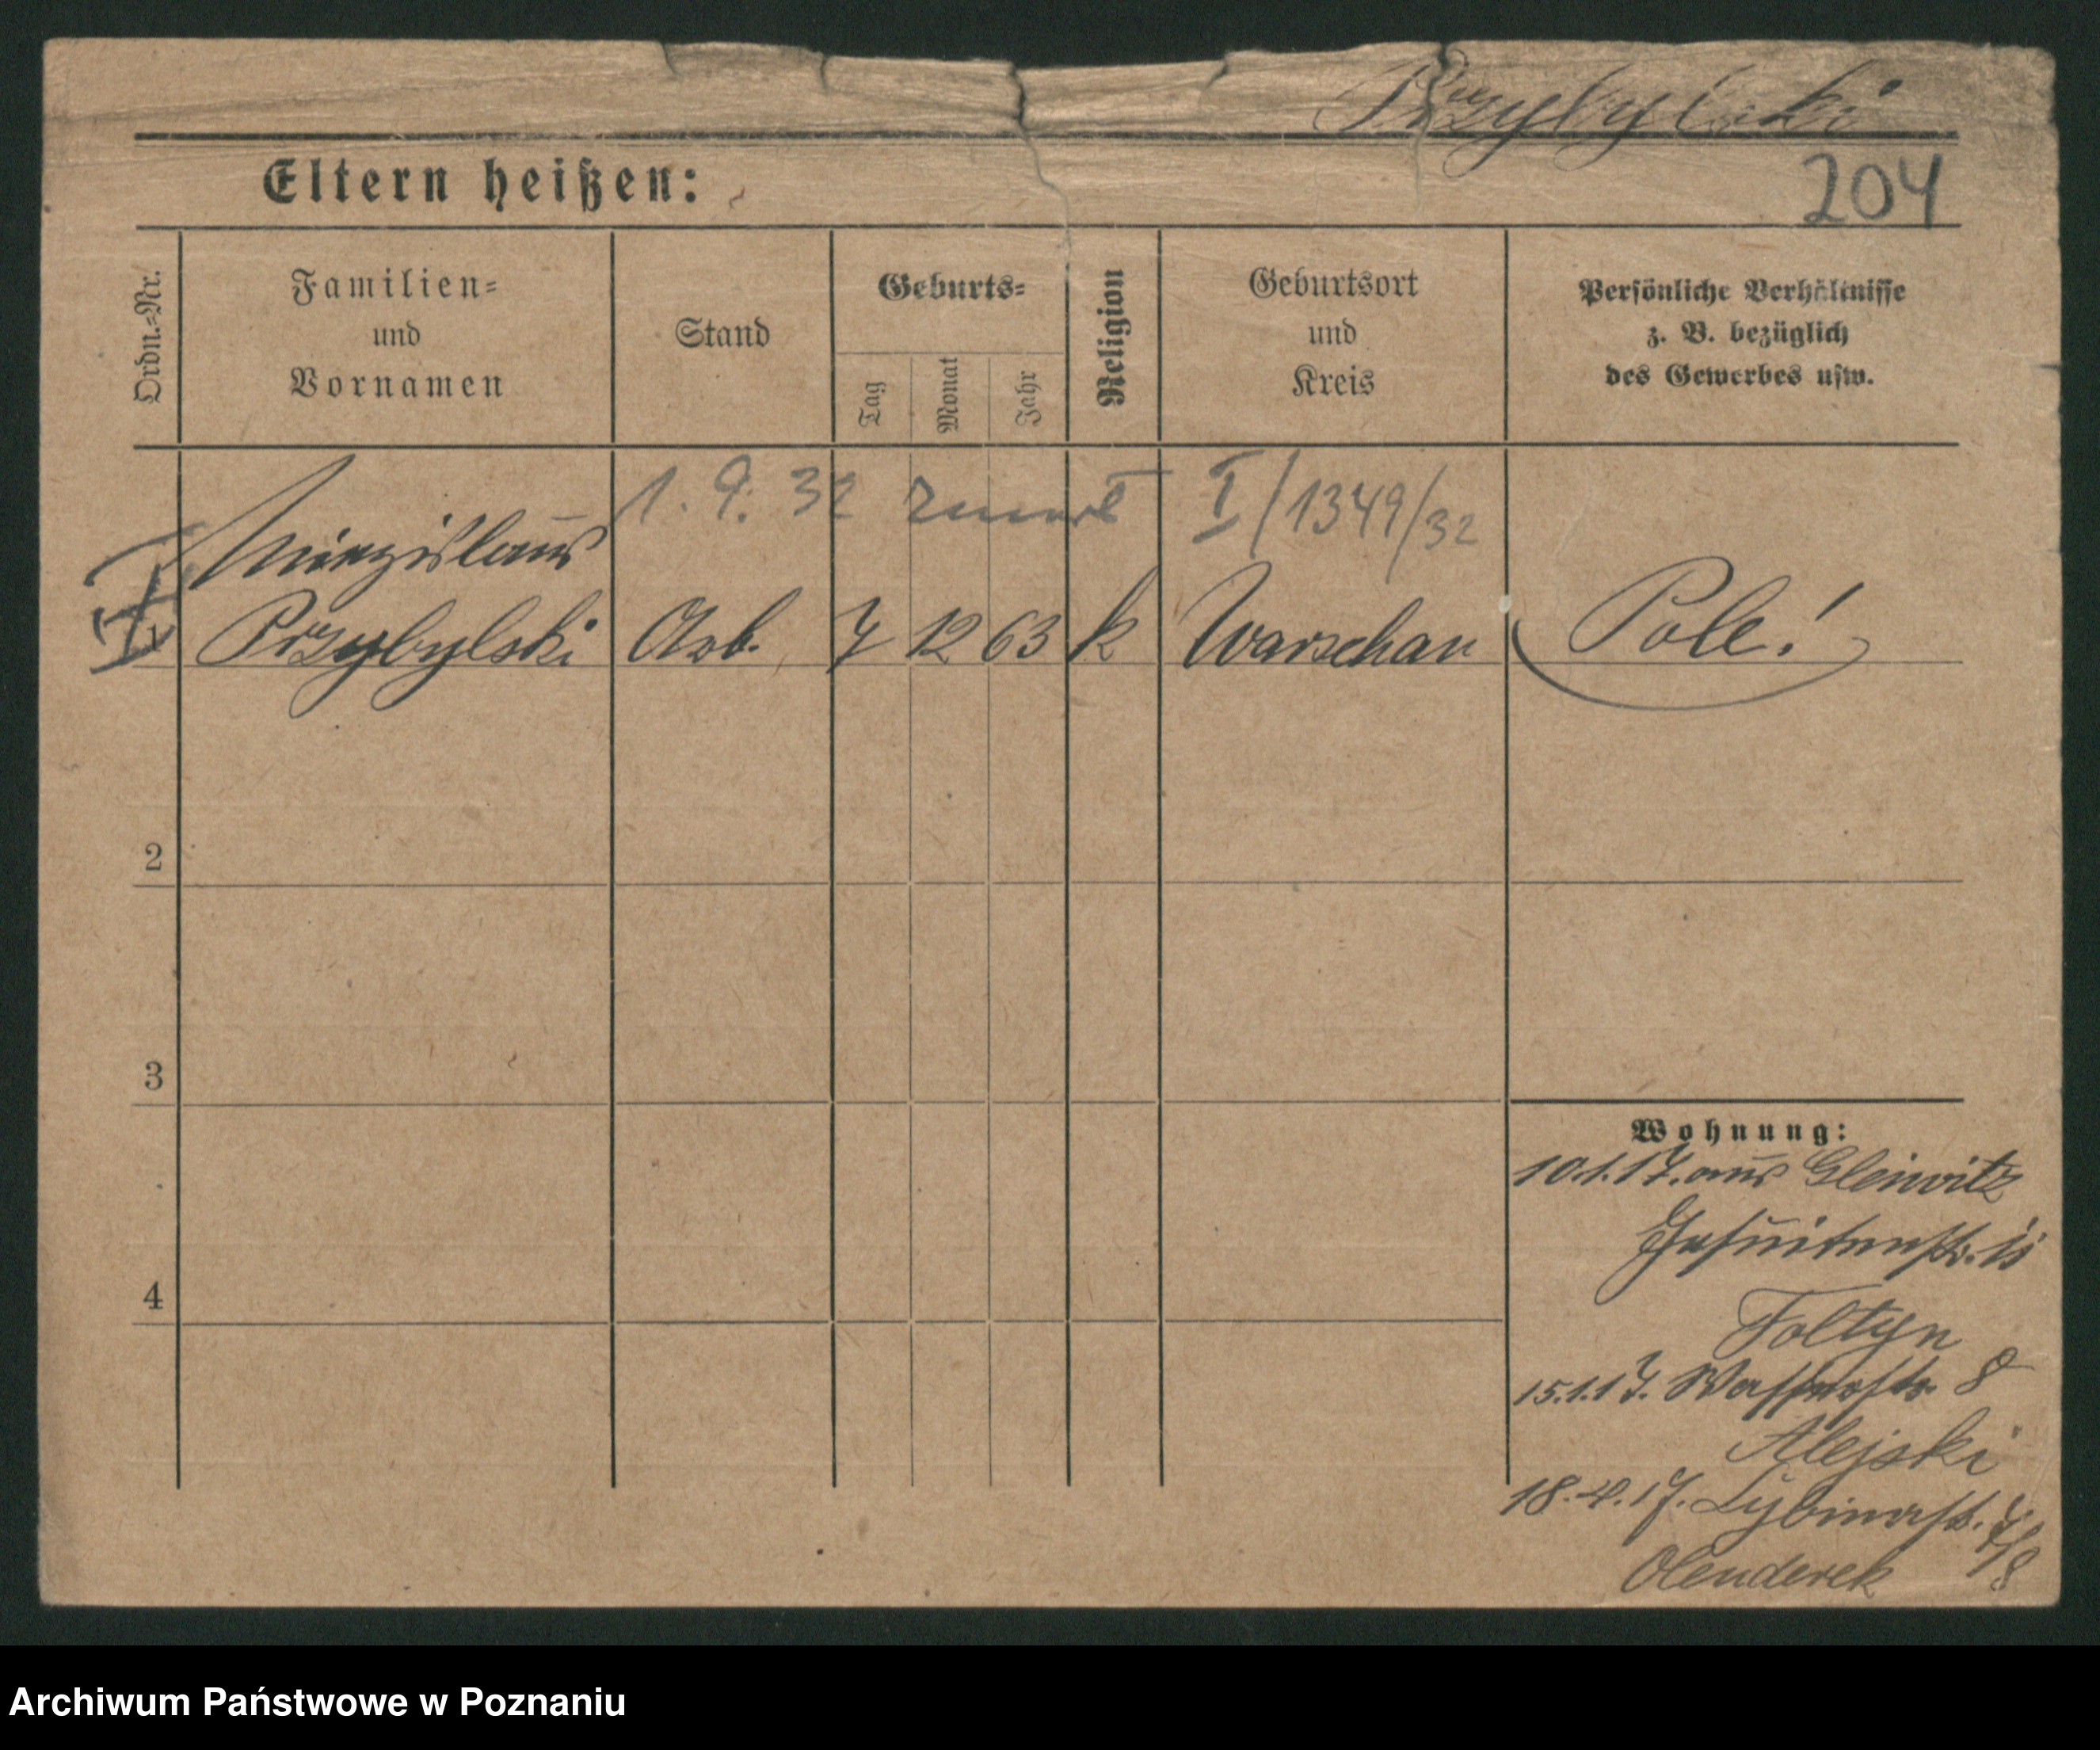 Przybylski
Eltern heißen:
204
Ordn.=Nr.
Familien=
und
Vornamen
Stand
Geburts=
Tag
Monat
Jahr
Religion
Geburtsort
und
Kreis
Persönliche Verhältnisse
z. B. bezüglich
des Gewerbes usw.
1. 9. 32 zmarł I/1349/32
Miezislaus
1
Przybylski Arb. 7 12 63 k Warschau Pole!
2
3
4
Wohnung:
10.1.17. aus Gleiwitz
Jesuitenstr.
Foltyn
15.1.17. Wasserstr. 8
Alejski
18.4.17. Cybinastr. 7/8
Olenderek
Archiwum Państwowe w Poznaniu